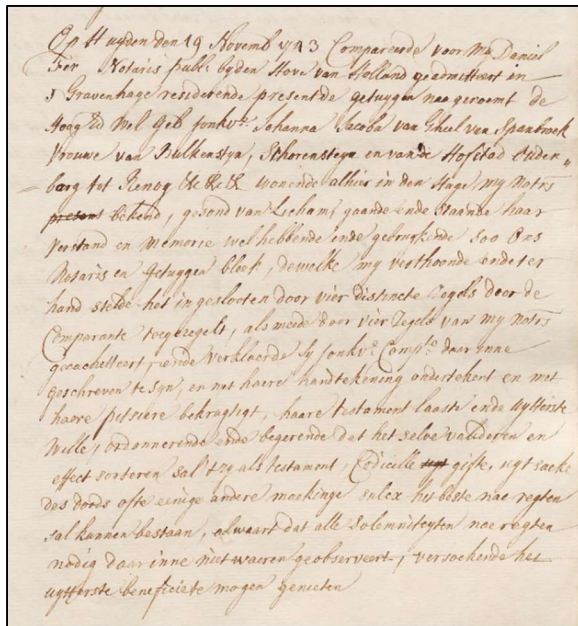 Op Huyden den 19 Novemb 1743 Compareerde voor My Daniel
Fer Notaris publ: byden Hove van Holland geadmitteert in
s Gravenhage residerende present de getuygen nagenoemt de
Hoog Ed Wel Geb Jonkvr: Johanna Jacoba van Gheel van Spanbroek
Vrouwe van Bulkensteyn, Schorensteyn en van de Hofstad Ouden„
barg tot Renog &c &c &c wonende alhier in den Hage, my Notrs
present bekend, gesond van Licham, gaande ende staande haar
verstand en Memorie wel hebbende ende gebruykende soo Ons
Notaris en Getuygen bleek, dewelke my verthoonde ende ter
hand stelde het ingeslooten door vier distincte Zegels door de
Comparante toegezegelt, als mede door vier Zegels van my Notrs
gecachetteert, ende verklaerde sy Jonkvr: Compte: daar inne
geschreven te syn, en met haere handtekening ondertekent en met
haare pitsiere bekragtigt, haare testament laaste ende uytterste
Wille, ordonnerende ende begerende dat het selve valideren en
effect sorteren sal 't zy als testament, Codicille gifte, uyt saake
des doods ofte einige andere maekinge sulcx het beste nae regten
sal kunnen bestaan, alwaart dat alle solemniteyten nae regten
nodig daar inne niet waeren geobserveert, versoekende het
uytterste beneficie te mogen genieten